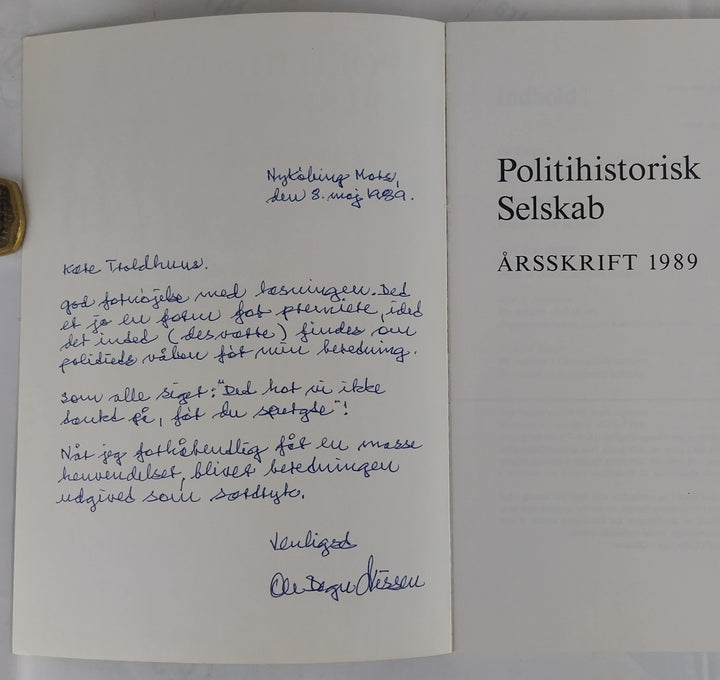 Nykøbing Mors,
den 8. maj 1989.
Kære Troldhuus.
god fornøjelse med læsningen. Det
er jo en form for premiere, idet
det intet (desværre) findes om
politiets våben før min beretning.
Som alle siger: "Det har vi ikke
tænkt på, før du spurgte"!
Når jeg forhåbentlig får en masse
henvendelser, bliver beretningen
udgivet som særtryk.
Venligst
Nissen
Politihistorisk
Selskab
ÅRSSKRIFT 1989
Indhold